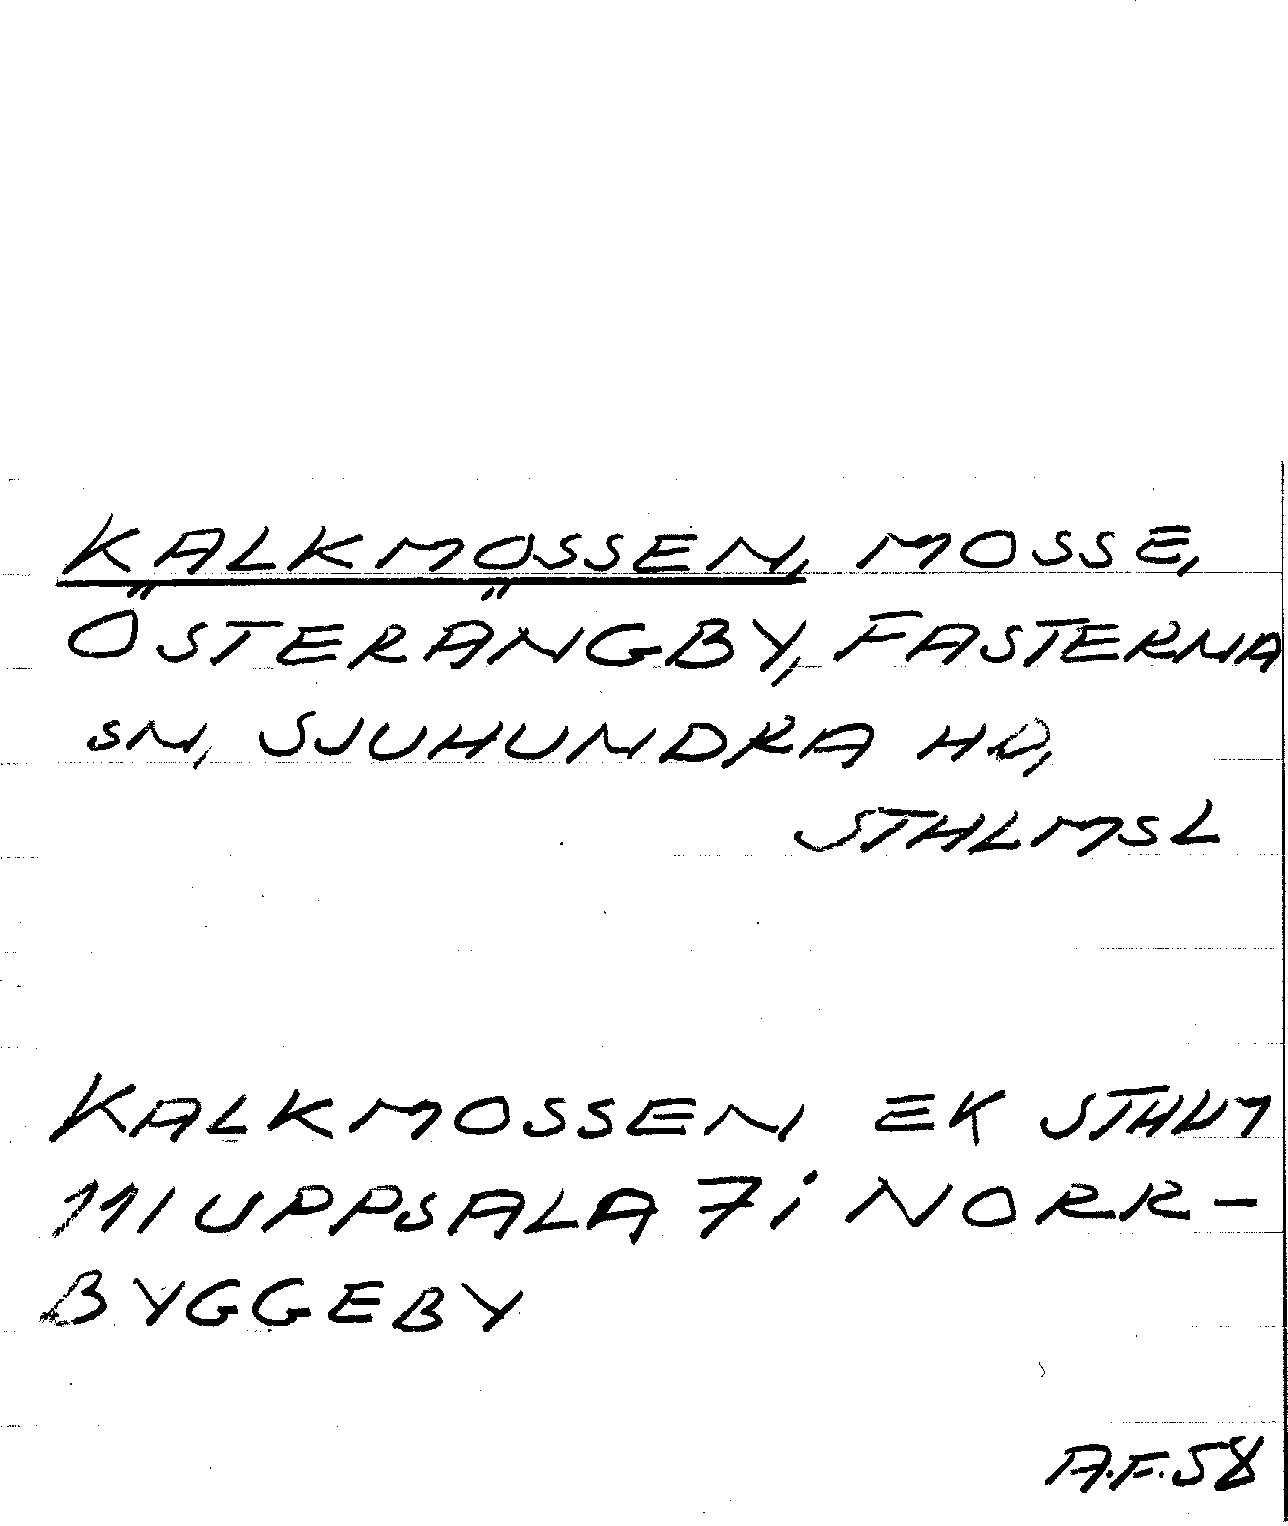 KALKMOSSEN, MOSSE,
ÖSTERÄNGBY, FASTERNA
SN, SJUHUNDRA HD,
STHLMSL
KALKMOSSEN EK STHLM
11I UPPSALA 7i NORR-
BYGGEBY
A.F.58